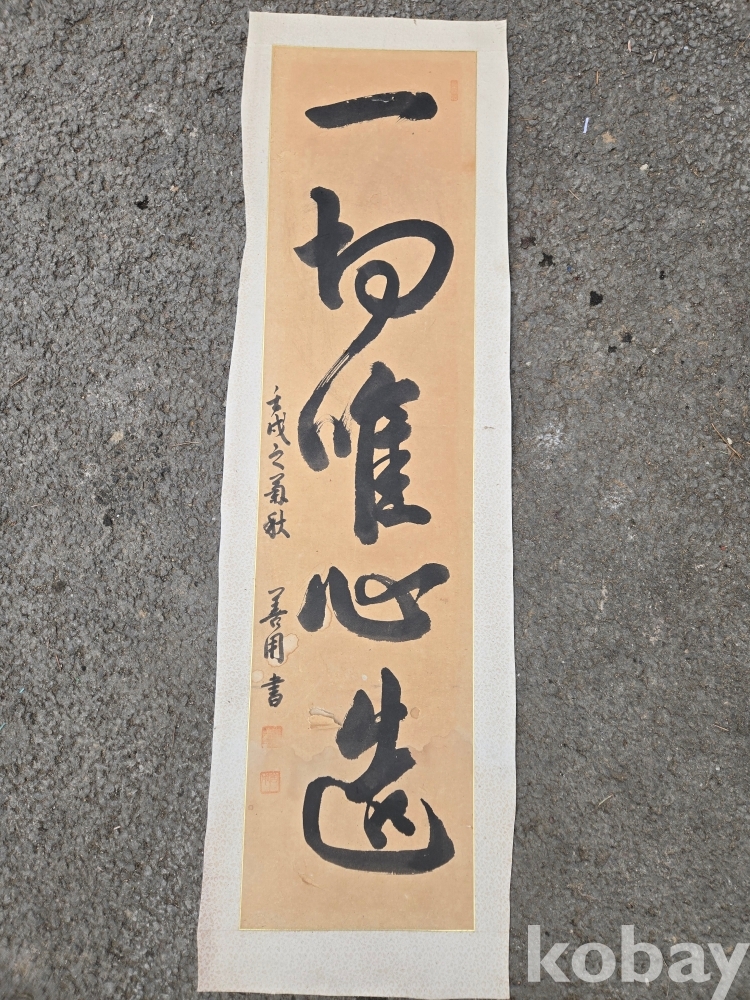 一切唯心造
壬戌之菊秋
善用書
kobay